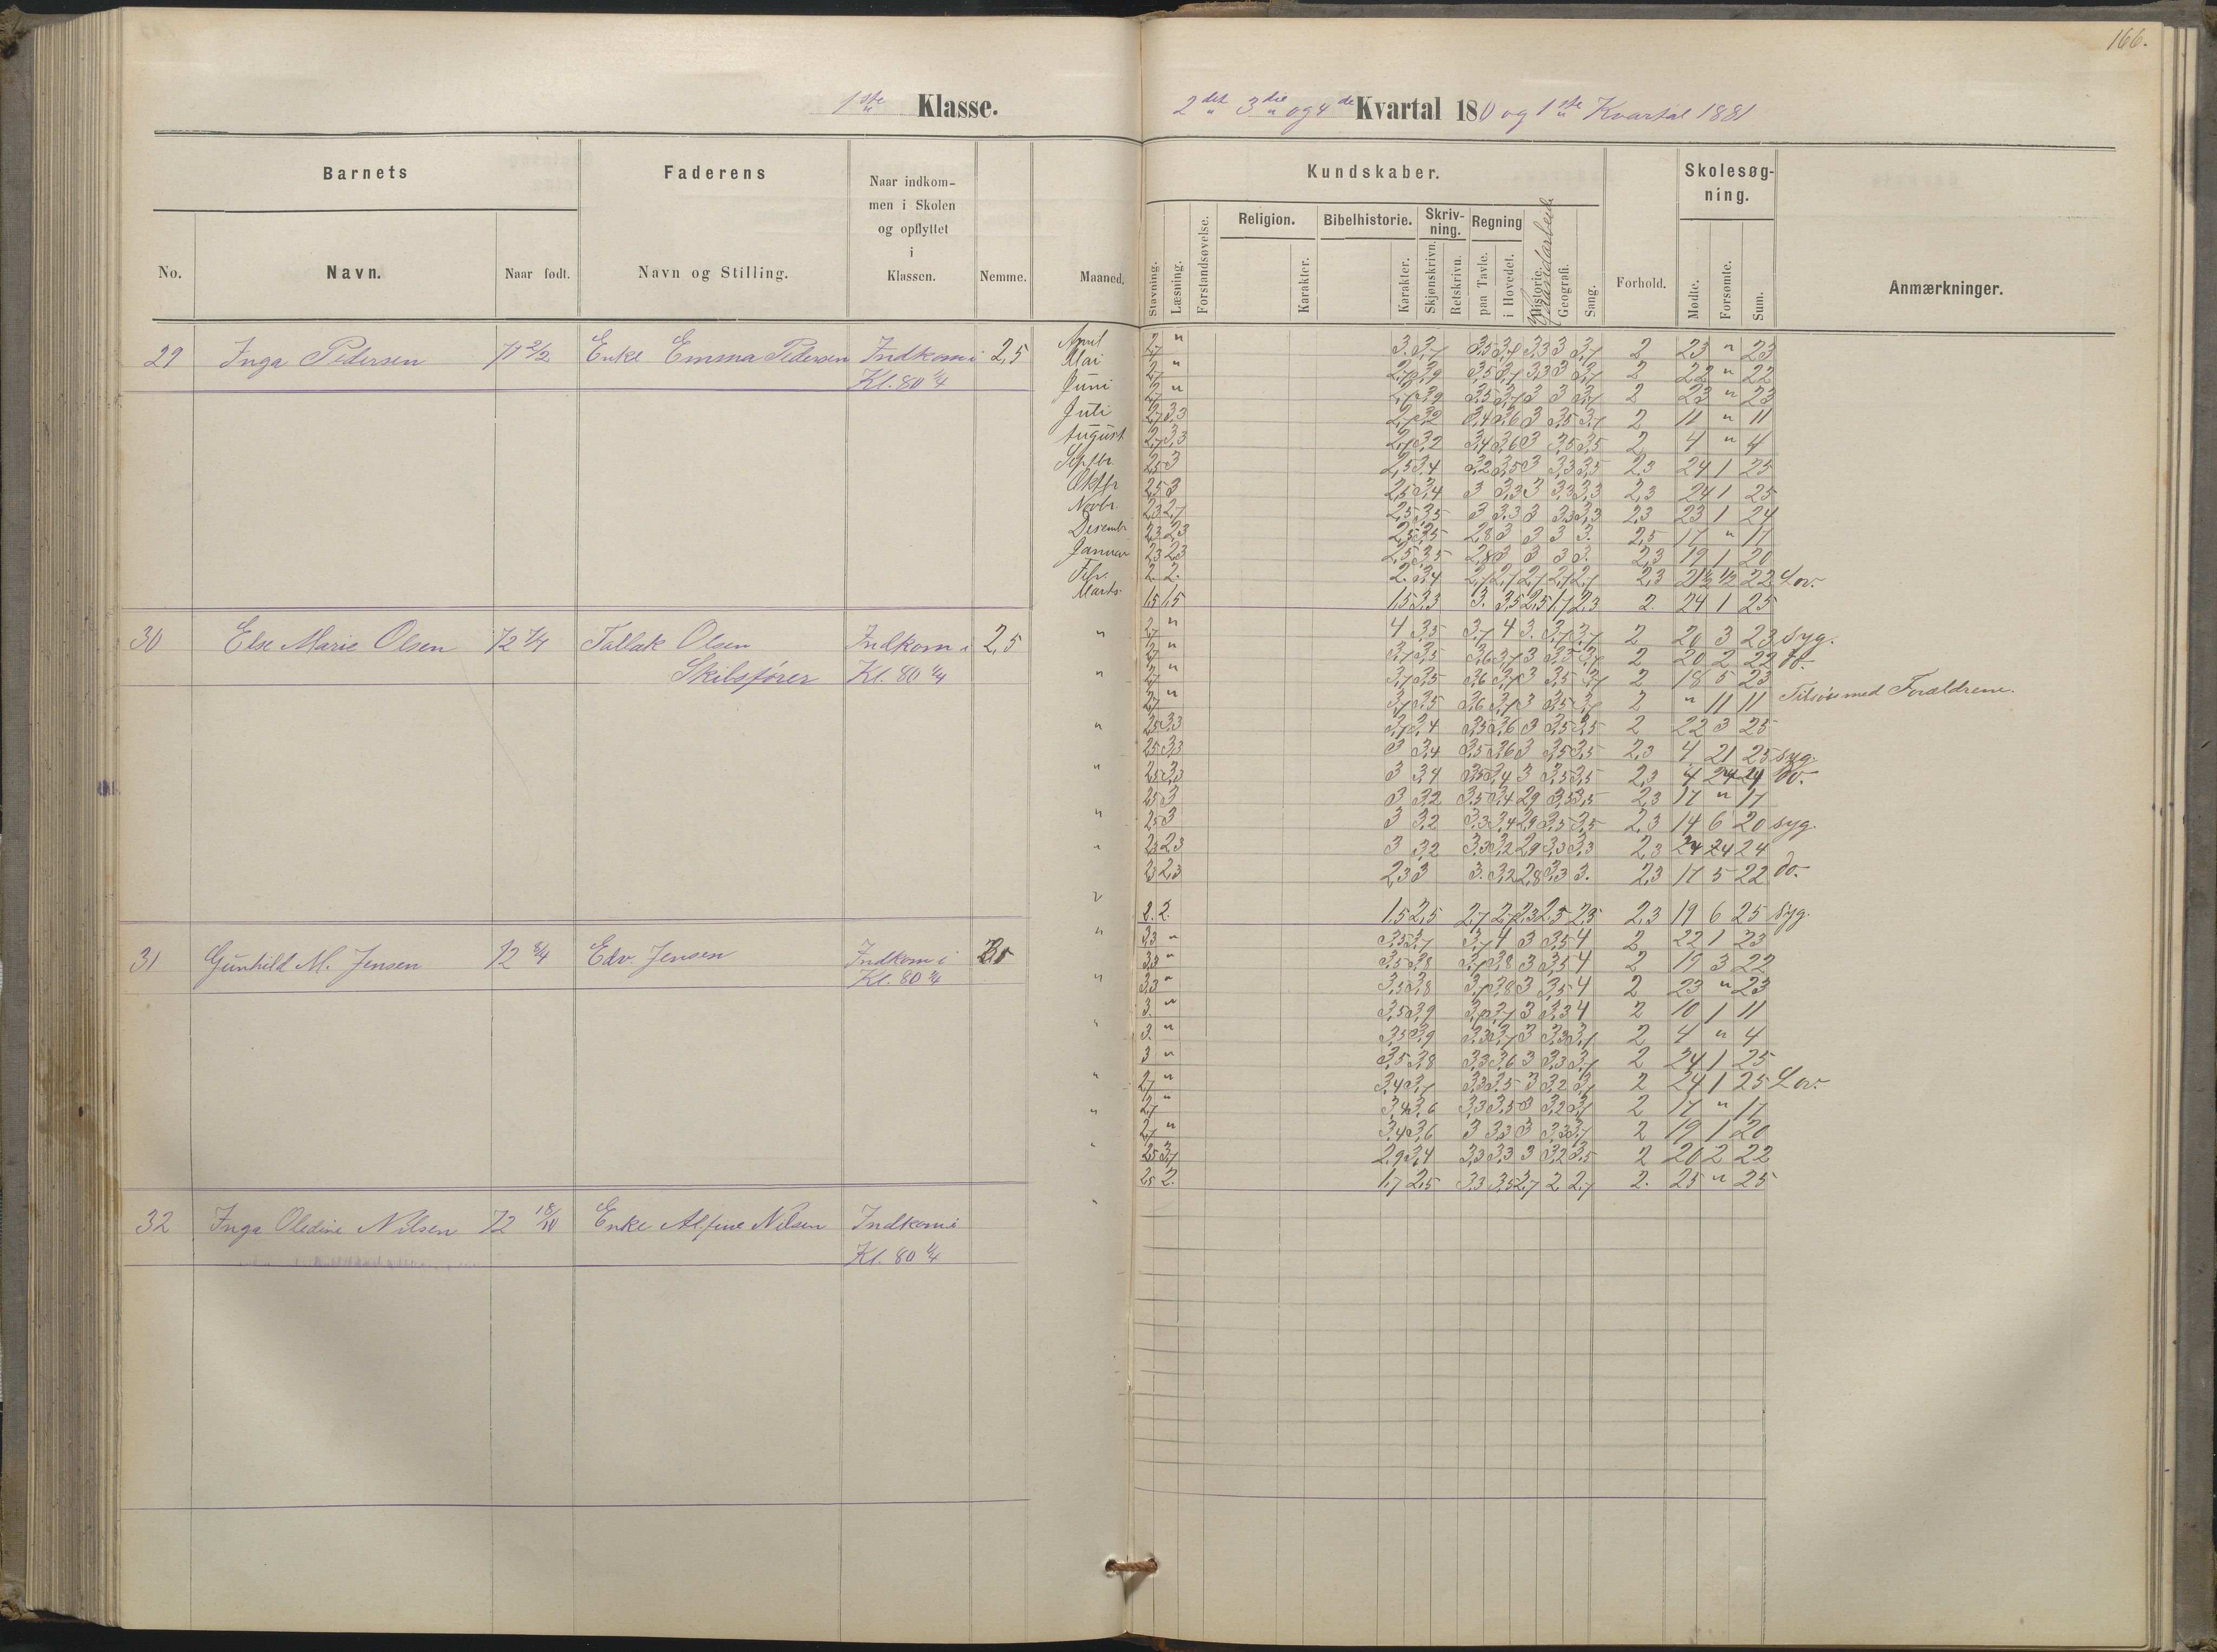 166.
1ste Klasse.
2det 3die og 4de Kvartal 180 og 1ste Kvartal 1881
Barnets
Faderens
Naar indkom-
men i Skolen
og opflyttet
i
Klassen.
No.
Navn.
Naar født.
Navn og Stilling.
Nemme.
Maaned.
Kundskaber.
Skolesøg-
ning.
Stavning.
Læsning.
Forstandsøvelse.
Religion.
Karakter.
Bibelhistorie.
Karakter.
Skriv-
ning.
Skjønskrivn.
Retskrivn.
Regning
paa Tavle.
i Hovedet.
Historie.
Haandarbeide
Geografi.
Sang.
Forhold.
Mødte.
Forsømte.
Sum.
Anmærkninger.
29 Inga Pedersen Enke Emma Pedersen Indkom i 2,5
Kl. 80 1/4
April 2 23 " 23
Mai 2 22 " 22
Juni 2 23 " 23
Juli 2 11 " 11
August 2 4 " 4
Septbr. 2,5 3 2,5 3,4 3,2 3,5 3 3,3 3,5 2,3 24 1 25
Oktbr 2,5 3 2,5 3,4 3 3,3 3 3,3 3,3 2,3 24 1 25
Novbr. 2,3 2,7 2,5 3,5 3 3,3 3 3,3 3,3 2,3 23 1 24
Desembr 2,3 2,3 2,5 3,5 2,8 3 3 3 3. 2,5 17 " 17
Januar 2,3 2,3 2,5 3,5 2,8 3 3 3 3. 2,3 19 1 20
Febr. 2. 2. 2. 3,4 2,7 2,7 2,7 2,7 2,7 2,3 21½ ½ 22 Lov.
Marts 1,5 1,5 1,5 3,3 3. 3,5 2,5 1,7 2,3 2. 24 1 25
30 Else Marie Olsen 72 Tallak Olsen Indkom i 2,5
Skibsfører Kl. 80 1/4
2,7 " 4 3,5 3,7 4 3. 3,7 3,7 2 20 3 23 Syg.
2,7 " 3,7 3,5 3,6 3,7 3 3,5 3,7 2 20 2 22 do.
2,7 " 3,7 3,5 3,6 3,7 3 3,5 3,7 2 18 5 23
2,7 " 3,7 3,5 3,6 3,7 3 3,5 3,7 2 " 11 11 Tilsøs med Forældrene.
2,5 3,3 3,7 3,4 3,5 3,6 3 3,5 3,5 2 22 3 25
2,5 3,3 3 3,4 3,5 3,6 3 3,5 3,5 2,3 4 21 25 Syg.
2,5 3,3 3 3,4 3,5 3,4 3 3,5 3,5 2,3 do.
2,5 3 3 3,2 3,5 3,4 2,9 3,5 3,5 2,3 17 " 17
2,5 3 3 3,2 3,3 3,4 2,9 3,5 3,5 2,3 14 6 20 syg.
2,3 2,3 3 3,2 3,3 3,2 2,9 3,3 3,3 2,3 24
2,3 2,3 2,3 3 3. 3,2 2,8 3,3 3. 2,3 17 5 22 do.
2. 2. 1,5 2,5 2,7 2,7 2,3 2,5 2,3 2,3 19 6 25 Syg.
31 Gunhild M. Jensen 72 Edv. Jensen Indkom i
Kl. 80 1/4
3,3 " 3,5 3,7 3,7 4 3 3,5 4 2 22 1 23
3,3 " 3,5 3,8 3,7 3,8 3 3,5 4 2 19 3 22
3,3 " 3,5 3,8 3,7 3,8 3 3,5 4 2 23 " 23
3. " 3,5 3,9 3,7 3 3,3 4 2 10 1 11
3. " 3,5 3,9 3,3 3,7 3 3,3 3,7 2 4 " 4
3 " 3,5 3,8 3,3 3,6 3 3,3 3,7 2 24 1 25
2,7 " 3,4 3,7 3,3 3,5 3 3,2 3,7 2 24 1 25 Lov.
2,7 " 3,4 3,6 3,3 3,5 3 3,2 3,7 2 17 " 17
2,7 " 3,4 3,6 3 3,3 3 3,3 3,7 2 19 1 20
2,5 3,7 2,9 3,4 3,3 3,3 3 3,2 3,5 2 20 2 22
2,5 2. 1,7 2,5 3,3 3,5 2,7 2 2,7 2. 25 " 25
32 Inga Oledine Nilsen 72 18/10 Enke Alfine Nilsen Indkom i
Kl. 80 1/4